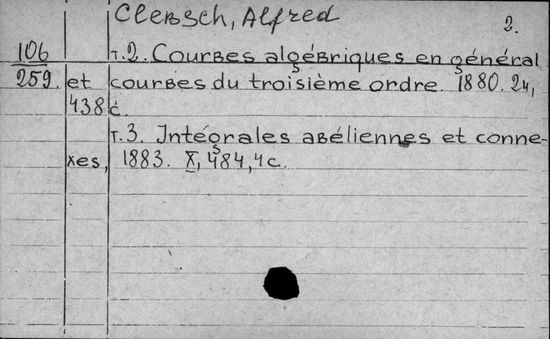 Clebsch, Alfred
2.
106
т.2. Courbes algébriques en général
259. et courbes du troisième ordre. 1880. 2н,
438 с.
т.3. Intégrales abéliennes et conne-
xes, 1883. X, 484, 4 с.